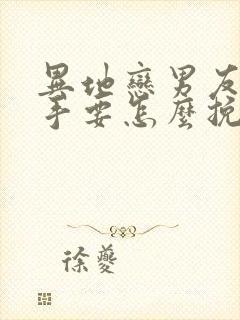 異地戀男友
手要怎麼挽
徐夔